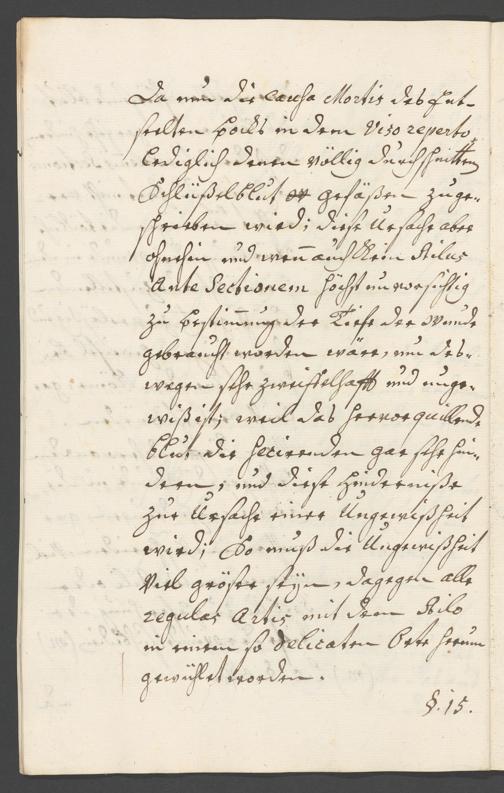 Da nun die causa Mortis des Ent-
seelten Pocks in dem Viso reperto
lediglich denen völlig durchschnittenen
Schlüßelblut gefäßen zuge-
schrieben wird; diese Ursache aber
ohnehin und wenn auch kein Stilus
Ante Sectionem höchst unvorsichtig
zu bestimmung der Tiefe der Wunde
gebraucht worden wäre, nur des-
wegen sehr zweiffelhafft und unge-
wiß ist; weil das hervorquillende
blut die Secirenden gar sehr hin-
dern, und diese Hinderniße
zur Ursache einer Ungewißheit
wird; So muß die Ungewißheit
Viel größer seyn, dagegen alle
regulas Artis mit dem Stilo
in einem so delicaten Orte herum
gewühlet worden.
§. 15.